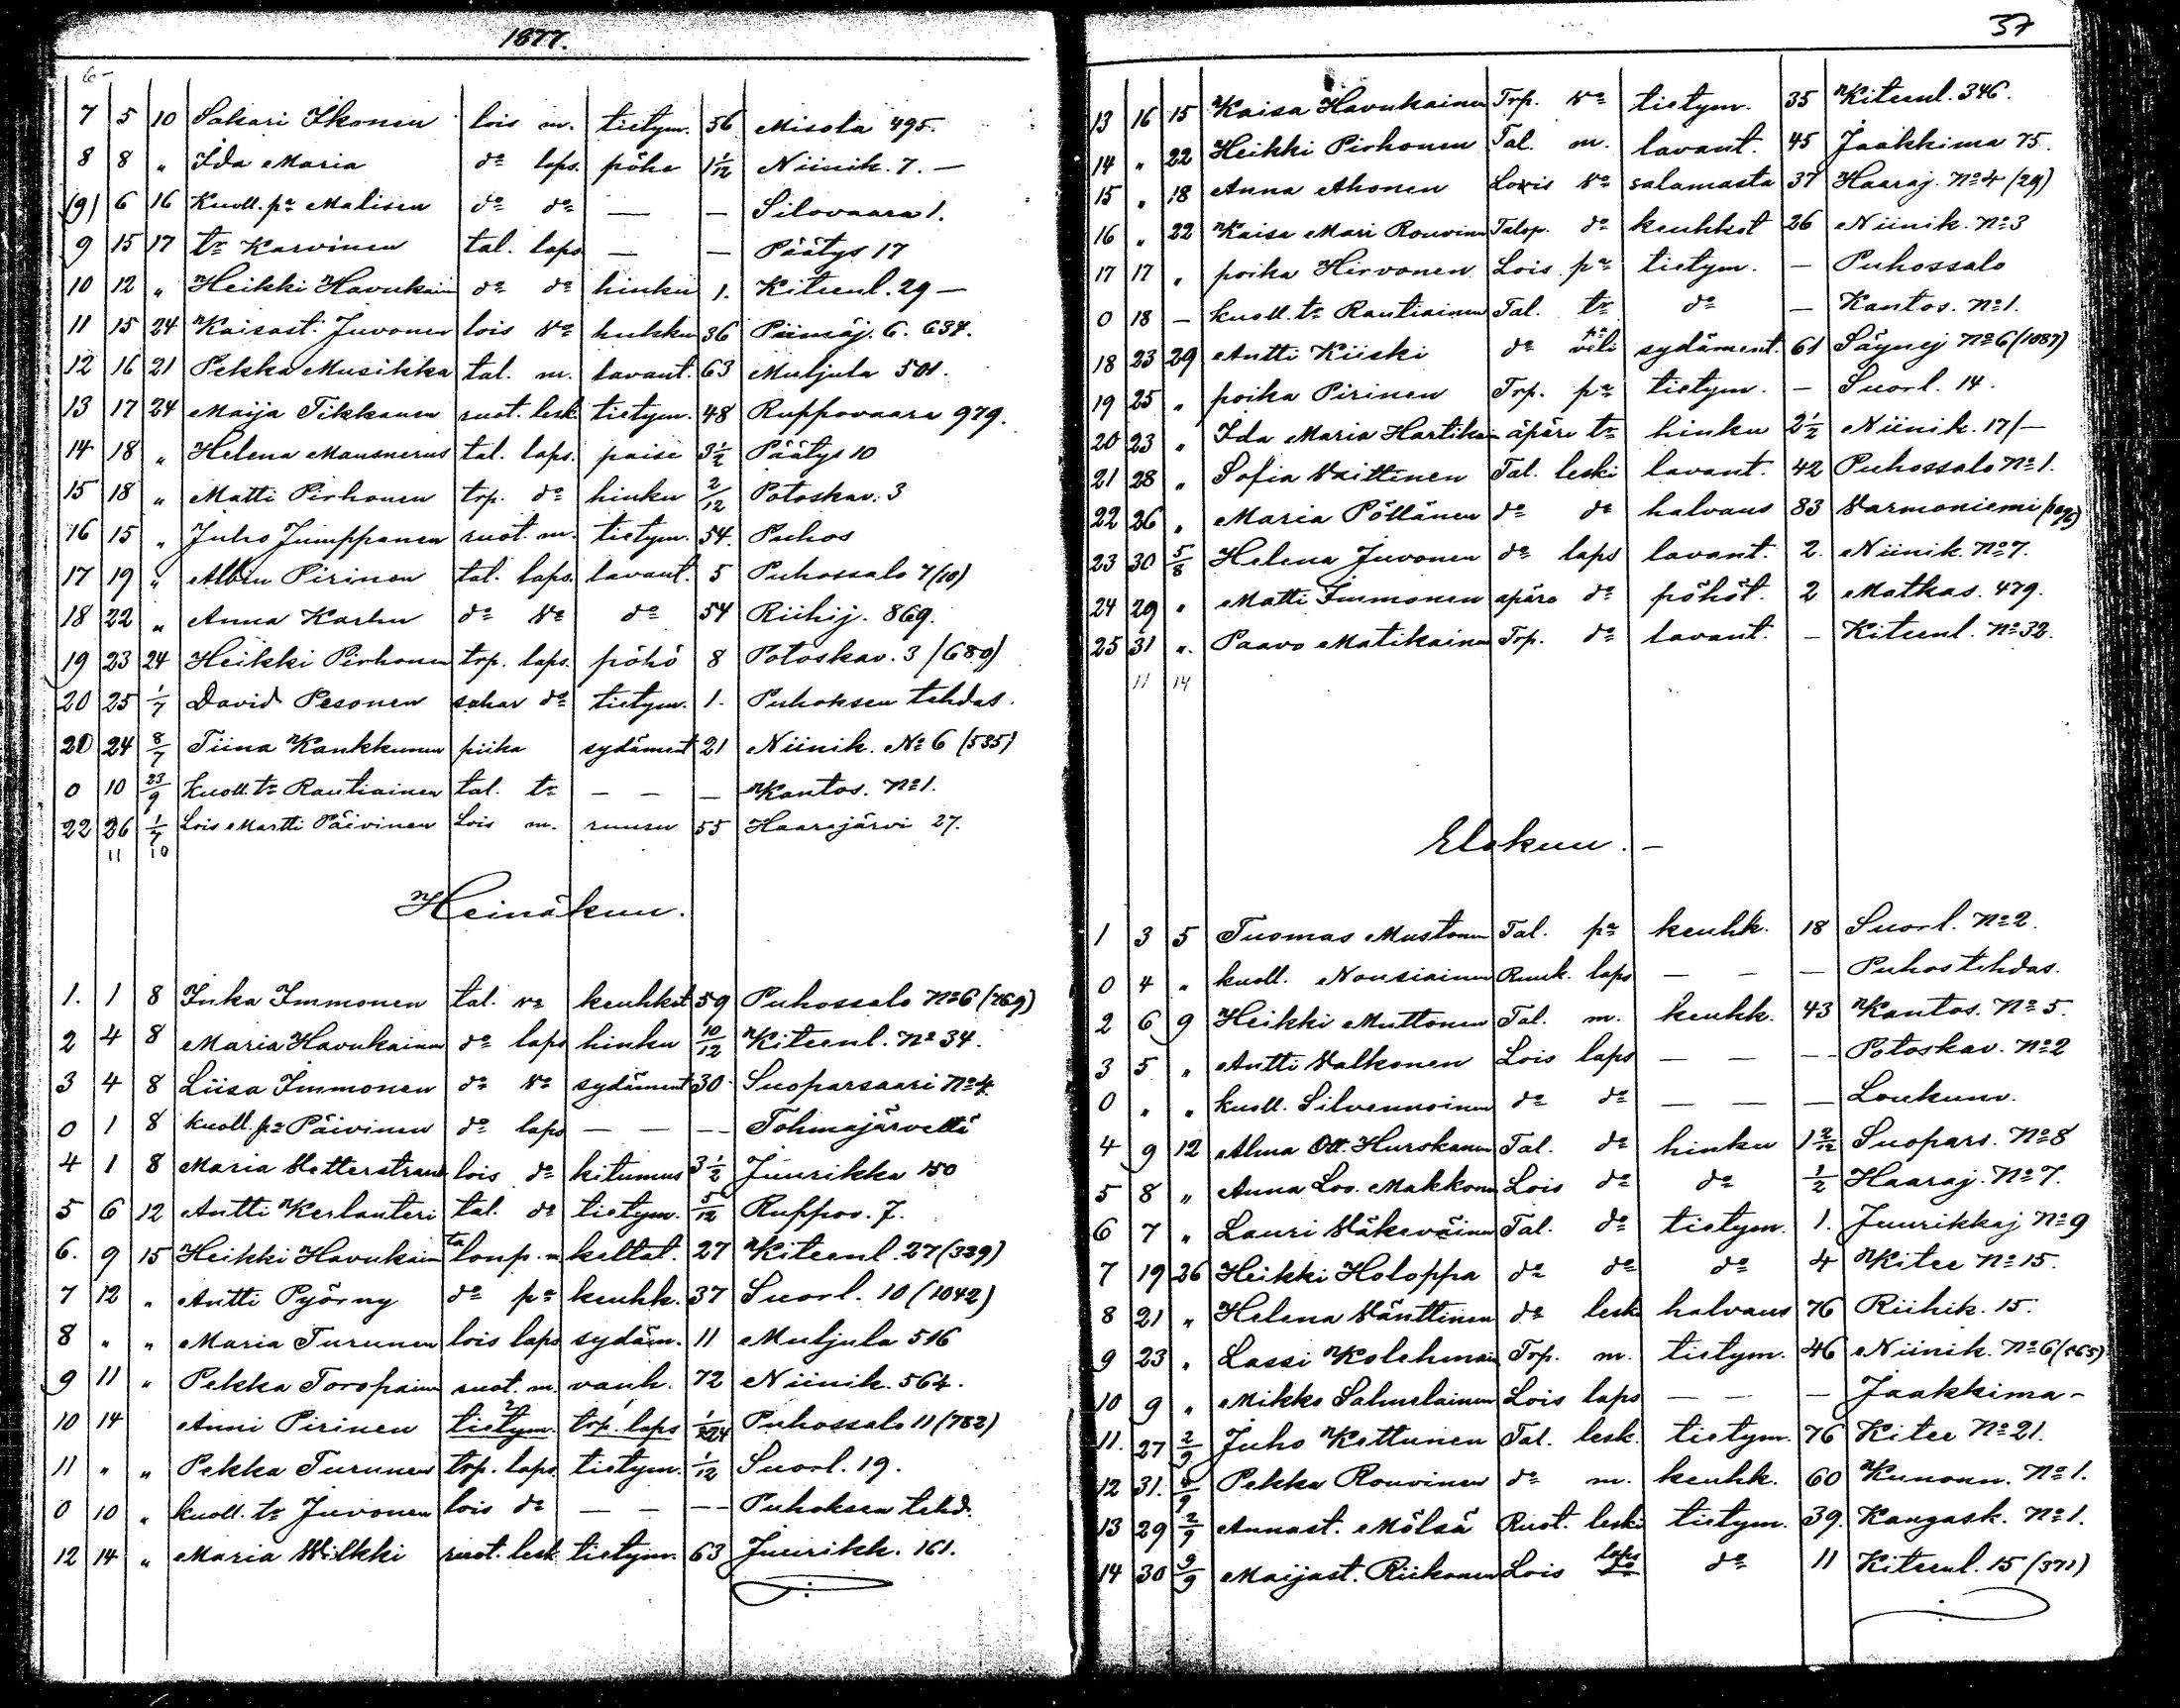 1877.
6-
7 5 10 Sakari Ikonen lois m. tietym. 56 Misola 495.
8 8 " Ida Maria do laps. pöhe 1 1/12 Niinik. 7. —
(9) 6 16 Kuoll. pa Malisen do do — — Silovaara 1.
9 15 17 tr Karvinen tal. laps — — Päätys 17
10 12 " Heikki Havukain do do hinku 1. Kiteenl. 29 —
11 15 24 Kaisast. Juvonen lois va hukku 36 Piimäj. 6. 634.
12 16 21 Pekka Musikka tal. m. lavant. 63 Muljula 501.
13 17 24 Maija Tikkanen ruot. lesk. tietym. 48 Ruppovaara 979.
14 18 " Helena Mausnerus tal. laps. paise 3 1/2 Päätys 10
15 18 " Matti Pirhonen trp. do hinku 2/12 Potoskav. 3
16 15 " Juho Jumppanen ruot. m. tietym. 54. Puhos
17 19 " Albin Pirinen tal. laps. lavant. 5 Puhossalo 7 (10)
18 22 " Anna Karhu do va do 54 Riihij. 869.
19 23 24 Heikki Pirhonen trp. laps. pöhö 8 Potoskav. 3 (680)
20 25 1/7 David Pesonen sahar do tietym. 1. Puhoksen tehdas.
20 24 8/7 Tiina Kankkunen piika sydäment 21 Niinik. No 6 (535)
0 10 23/9 Kuoll. tr Rautiainen tal. tr — — — Kantos. No 1.
22 26 1/7 Lois Martti Päivinen Lois m. ruusu 55 Haarajärvi 27.
11 10
Heinäkuu.
1. 1 8 Inka Immonen tal. va keuhkot 59 Puhossalo No 6 (769)
2 4 8 Maria Havukainen do laps hinku 10/12 Kiteenl. No 34.
3 4 8 Liisa Immonen do va sydäment 30 Suoparsaari No 4.
0 1 8 kuoll. pa Päivinen do laps — — — Tohmajärveltä
4 1 8 Maria Vetterstrand lois do kitumus 3 1/2 Juurikka 150
5 6 12 Antti Kerlanteri tal. do tietym. 5/12 Ruppov. 7.
6. 9 15 Heikki Havukain ta lonp. m keltat. 27 Kiteenl. 27 (339)
7 12 " Antti Pyörny do pa keuhk. 37 Suorl. 10 (1042)
8 " " Maria Turunen lois laps sydäm. 11 Muljula 516
9 11 " Pekka Toropainen ruot. m. vanh. 72 Niinik. 564.
10 14 Anni Pirinen tietym. 2 trp. laps 1 1/24 Puhossalo 11 (782)
11 " " Pekka Turunen trp. laps tietym. 1/12 Suorl. 19.
0 10 " kuoll. tr Juvonen lois do — — — Puhoksen tehd.
12 14 " Maria Wilkki ruot. lesk tietym. 63 Juurikk. 161.
37
13 16 15 Kaisa Havukainen Trp. va tietym. 35 Kiteenl. 346.
14 " 22 Heikki Pirhonen Tal. m. lavant. 45 Jaakkima 75.
15 " 18 Anna Ahonen Lois va salamasta 37 Haaraj. No 4 (29)
16 " 22 Kaisa Mari Rouvinen Talop. do keuhkot 26 Niinik. No 3
17 17 " poika Hirvonen Lois pa tietym. — Puhossalo
0 18 — kuoll. tr Rautiainen Tal. tr do — Kantos. No 1.
18 23 29 Antti Kiiski do veli sydäment. 61 Säynej No 6 (1087)
19 25 " poika Pirinen Trp. pa tietym. — Suorl. 14.
20 23 " Ida Maria Hartikain äpäre tr hinku 2 1/2 Niinik. 17/—
21 28 " Sofia Vaittinen Tal. leski lavant. 42 Puhossalo No 1.
22 26 " Maria Pöllänen do do halvaus 83 Varmoniemi
23 30 5/8 Helena Juvonen do laps lavant. 2. Niinik. No 7.
24 29 " Matti Immonen äpäre do pöhöt. 2 Matkas. 479.
25 31 " Paavo Matikainen Trp. do lavant. — Kiteenl. No 32.
11 14
Elokuu. —
1 3 5 Tuomas Mustonen Tal. pa keuhk. 18 Suorl. No 2.
0 4 " kuoll. Nousiainen Ruuk. laps — — — Puhos tehdas.
2 6 9 Heikki Muttonen Tal. m. keuhk. 43 Kantos. No 5.
3 5 " Antti Valkonen Lois laps — — — Potoskav. No 2
0 " " kuoll. Silvennoinen do do — — — Loukunv.
4 9 12 Alma Ott. Hurskanen Tal. do hinku 1 2/12 Suopars. No 8
5 8 " Anna Lov. Makkonen Lois do do 1/2 Haaraj. No 7.
6 7 " Lauri Väkeväinen Tal. do tietym. 1. Juurikkaj No 9
7 19 26 Heikki Holoppa do do do 4 Kitee No 15.
8 21 " Helena Vänttinen do lesk halvaus 76 Riihik. 15.
9 23 " Lassi Kolehmain Trp. m. tietym. 46 Niinik. No 6 (565)
10 9 " Mikko Sahurlainen Lois laps — — — Jaakkima -
11. 27 2/9 Juho Kettunen Tal. lesk. tietym. 76 Kitee No 21.
12 31. 4/9 Pekka Rouvinen do m. keuhk. 60 Kunonn. No 1.
13 29 2/9 Annast. Mölsä Ruot. leski tietym. 39. Kangask. No 1.
14 30 9/9 Maijast. Riikonen Lois laps do 11 Kiteenl. 15 (371)